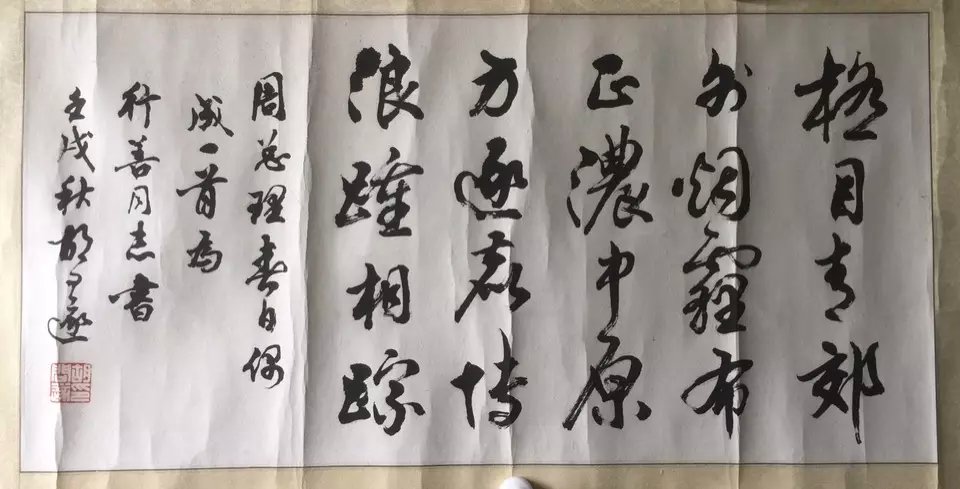 極目青郊
外烟霾布
正濃中原
方逐鹿博
浪踵相踪
周总理春日偶
成一首为
行善同志書
壬戌秋胡问遂